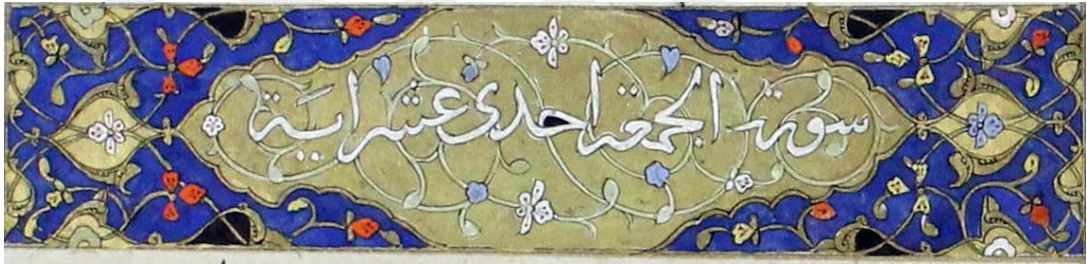 سورة الجمعة احدى عشر اية